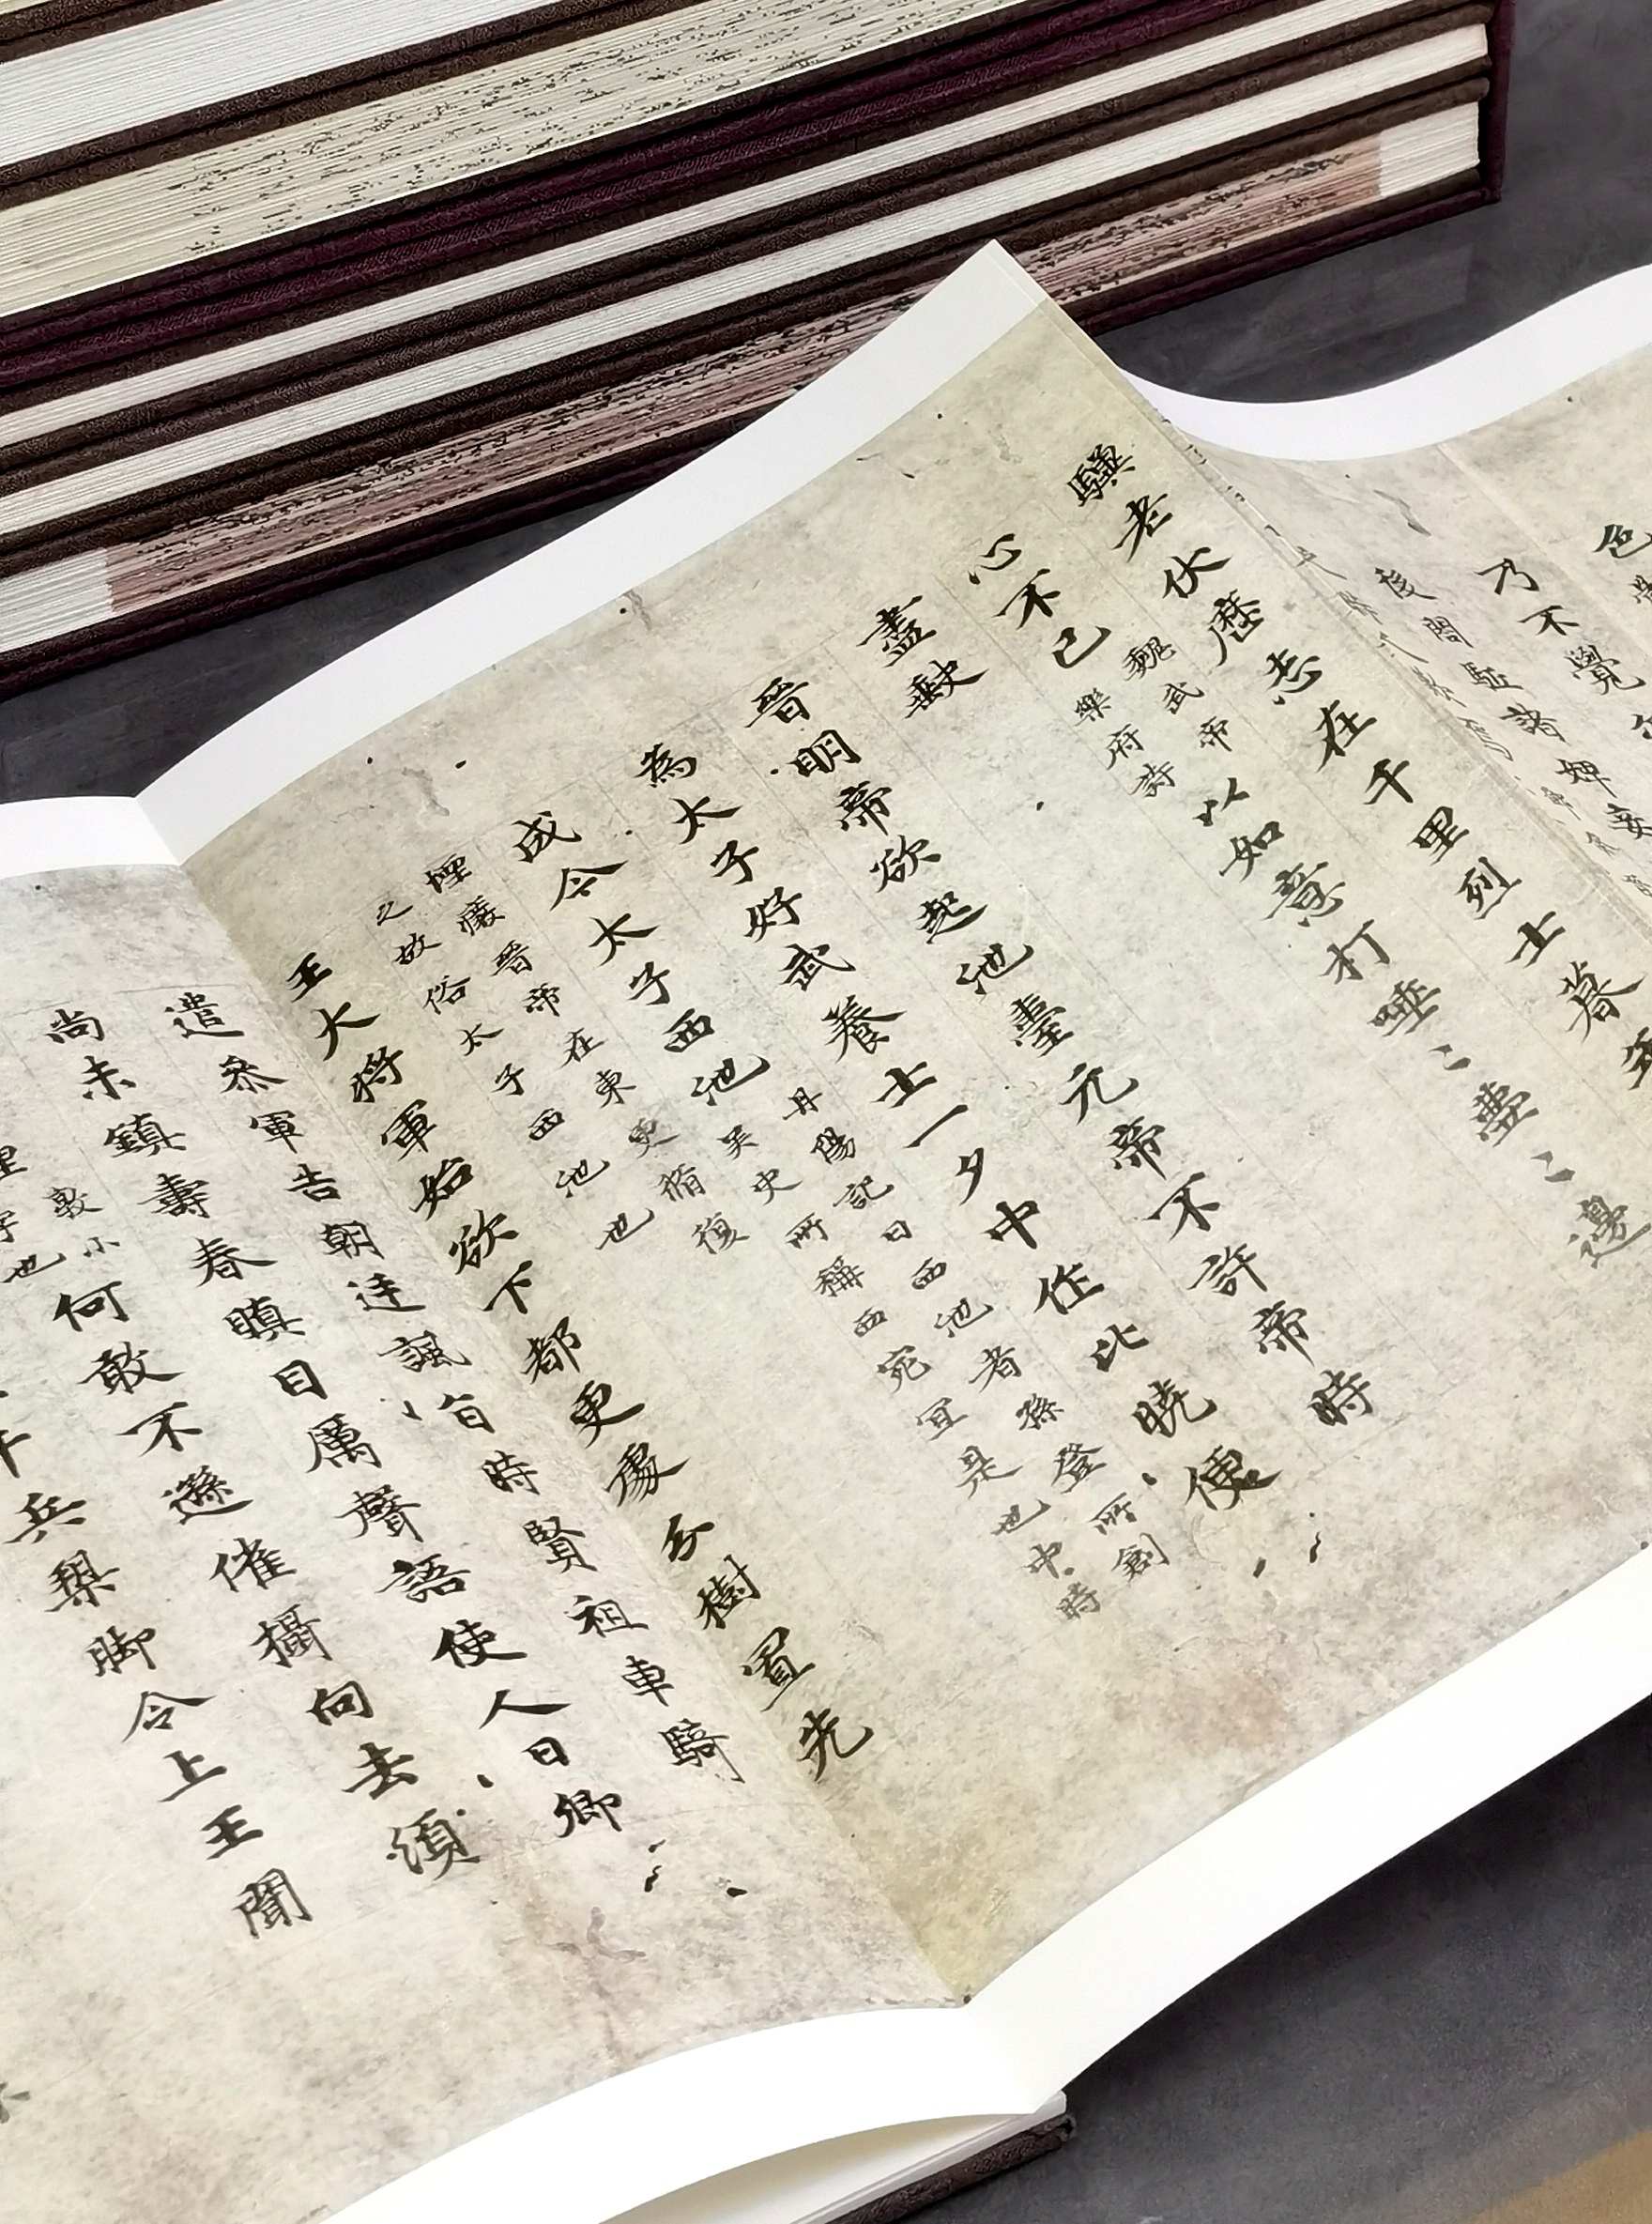 色
乃不覺
後閤驅諸婢妾
驥老伏歷志在千里烈士暮年
心不已
魏武帝
樂府詩
以如意打唾〻壺〻邊
盡缺
晉明帝欲起池臺元帝不許帝時
為太子好武養士一夕中作比曉便
成今太子西池
丹陽記曰西池者孫登所創
吳史所稱西宛宜是也中時
堙癈晉帝在東更脩復
之故俗太子西池也
王大將軍始欲下都更處分樹置先
遣參軍告朝廷諷旨時賢祖車騎
尚未鎮壽春瞋目厲聲語使人曰卿
敦小
字也
何敢不遜催攝向去須
千兵槊脚令上王聞